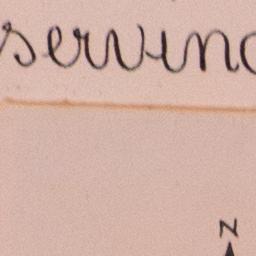 servino
N